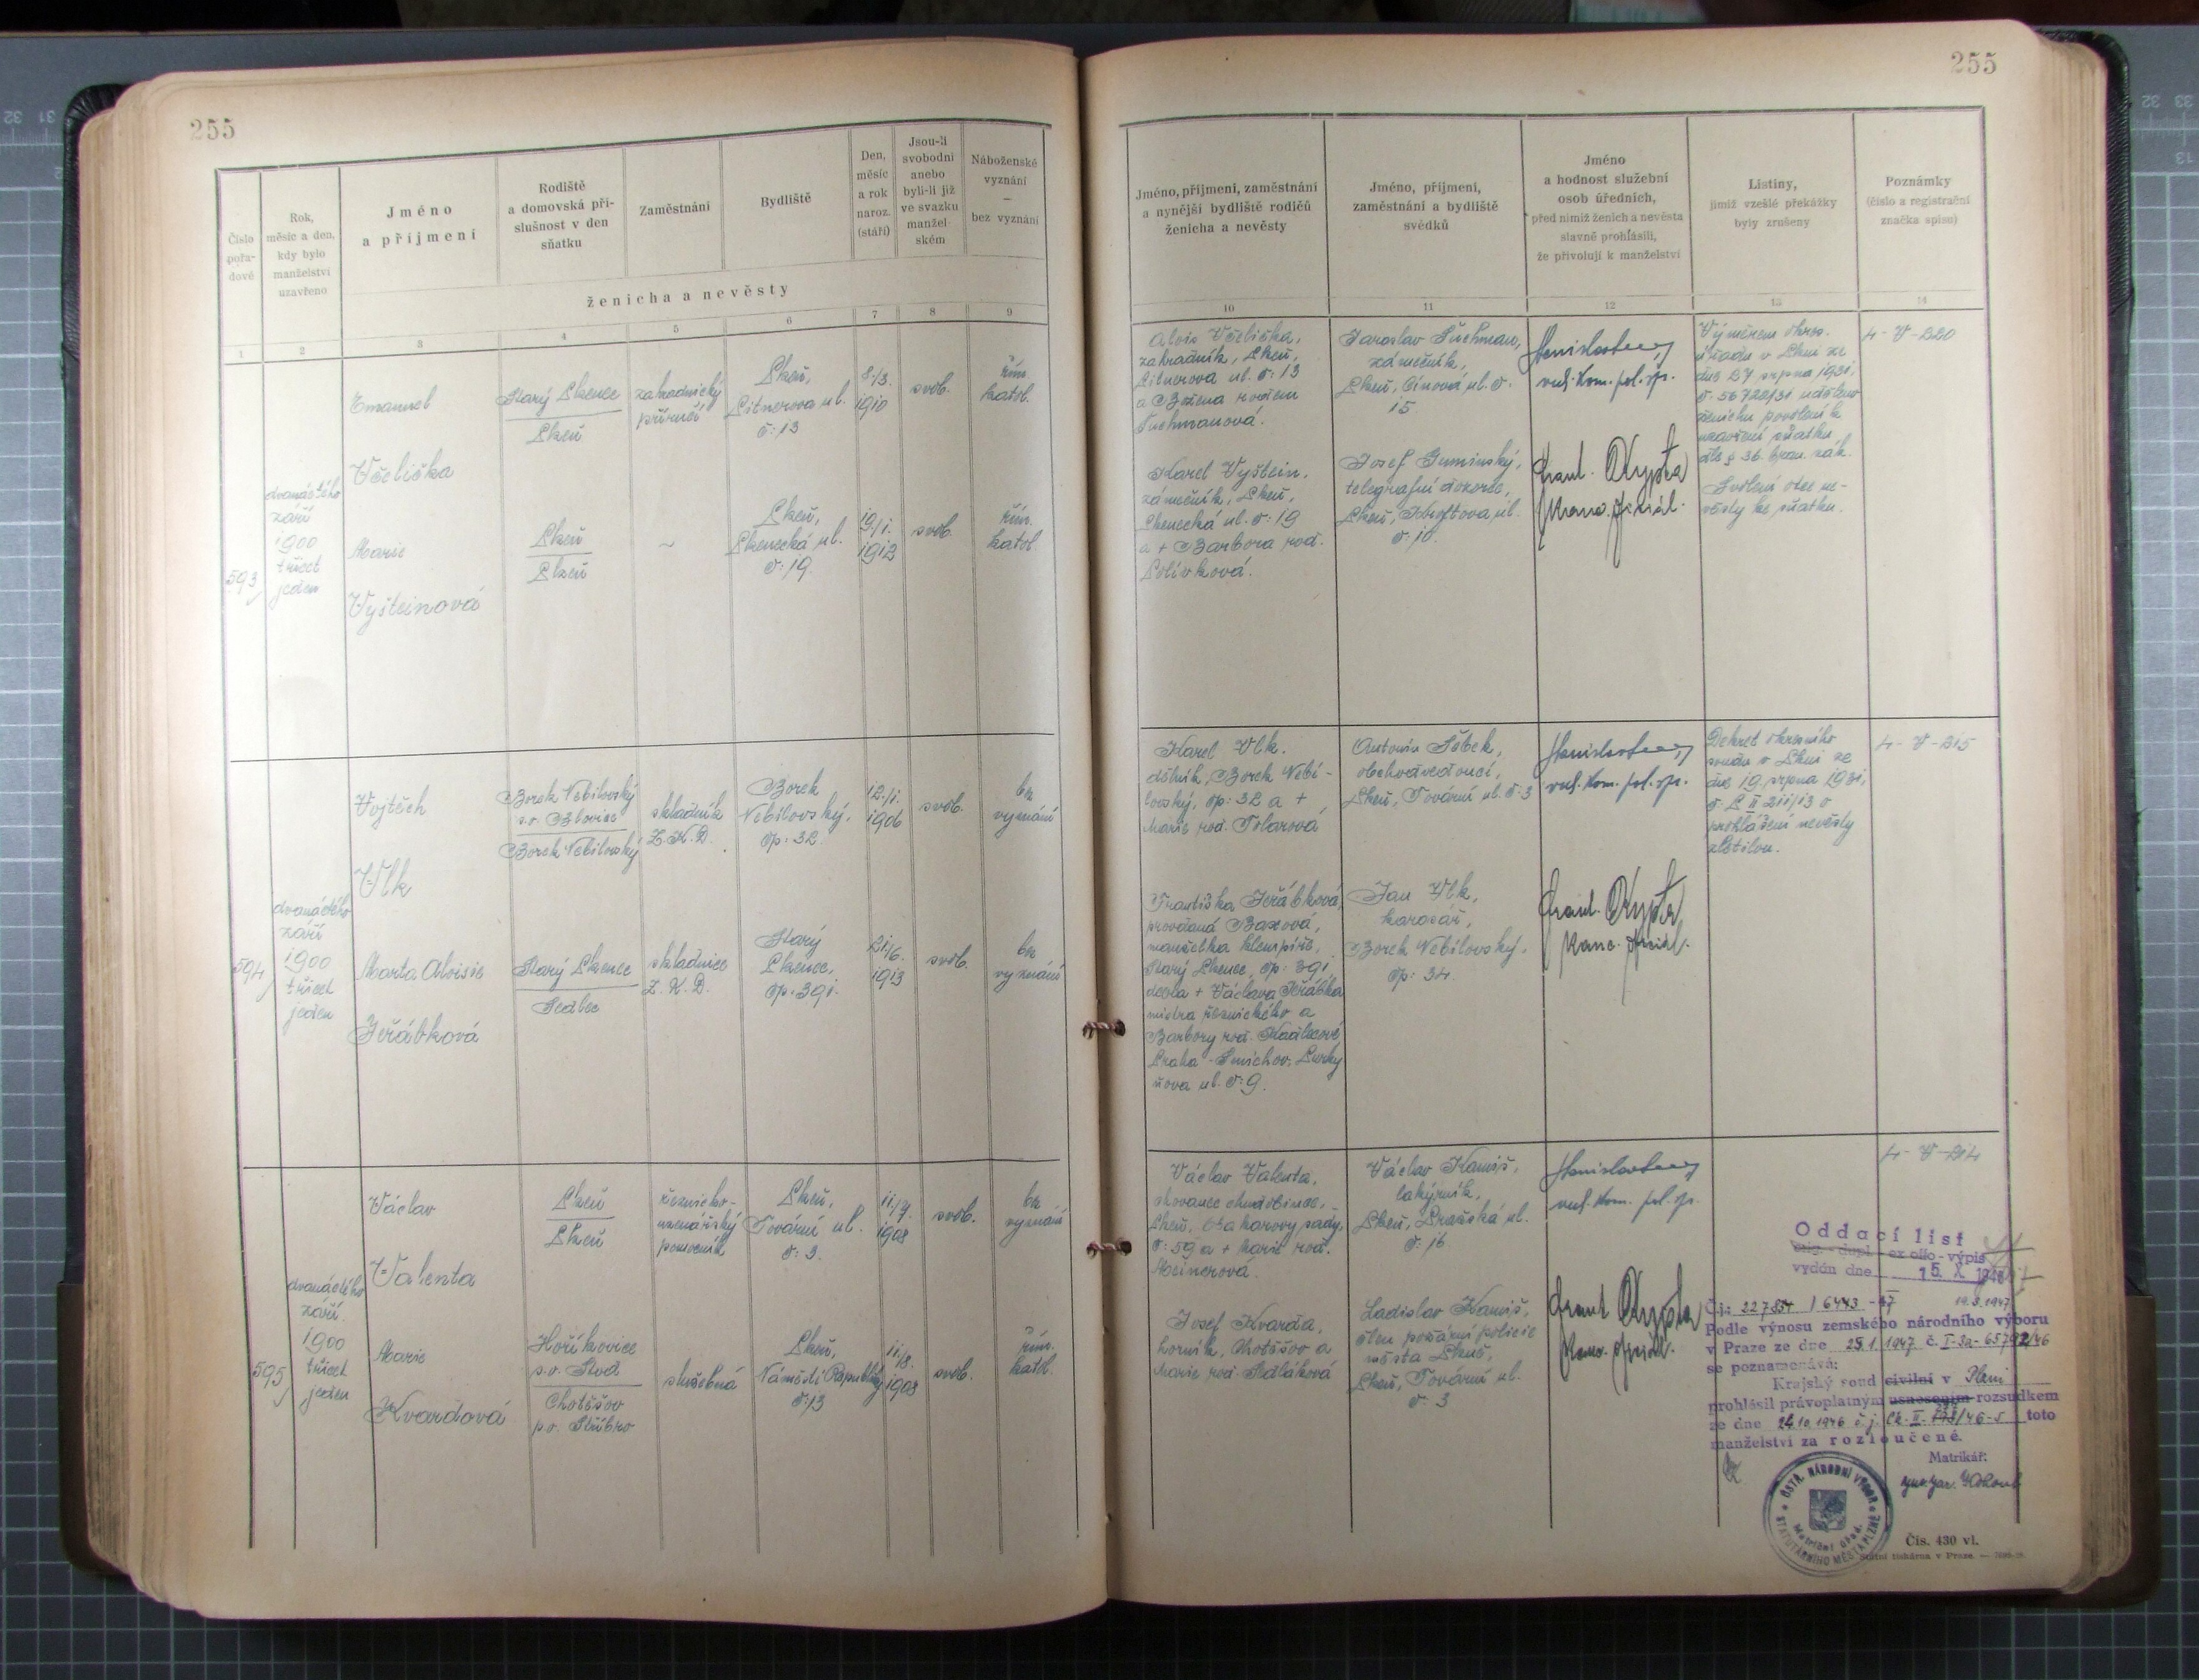 255
255
Číslo
pořa-
dové
Rok,
měsíc a den,
kdy bylo
manželství
uzavřeno
Jméno
a příjmení
Rodiště
a domovská pří-
slušnost v den
sňatku
Zaměstnání
Bydliště
Den,
měsíc
a rok
naroz.
(stáří)
Jsou-li
svobodni
anebo
byli-li již
ve svazku
manžel-
ském
Náboženské
vyznání
—
bez vyznání
ženicha a nevěsty
1 2 3 4 5 6 7 8 9
Jméno, příjmení, zaměstnání
a nynější bydliště rodičů
ženicha a nevěsty
Jméno, příjmení,
zaměstnání a bydliště
svědků
Jméno
a hodnost služební
osob úředních,
před nimiž ženich a nevěsta
slavně prohlásili,
že přivolují k manželství
Listiny,
jimiž vzešlé překážky
byly zrušeny
Poznámky
(číslo a registrační
značka spisu)
10 11 12 13 14
593
dvanáctého
září
1900
třicet
jeden
Emanuel
Včelička
Starý Plzenec
Plzeň
zahradnický
příručí
Plzeň,
Litnerova ul.
č: 13
8./3.
1910
svob.
řím.
katol.
Marie
Vyšteinová
Plzeň
Plzeň
~
Plzeň,
Plzenecká ul.
č: 19
19./1.
1912
svob.
řím.
katol.
Alois Včelička,
zahradník, Plzeň,
Litnerova ul. č: 13
a Božena rozen
Tuchmanová.
Karel Vyštein,
zámečník, Plzeň,
Plzenecká ul. č: 19
a + Barbora roz.
Polívková.
Jaroslav Tuchman,
zámečník,
Plzeň, Cínová ul. č.
15
Josef Guminský,
telegrafní dozorce,
Plzeň, Kroftova ul.
č: 10.
rad. kom. pol. sp.
Frant. Chypta
kanc. oficiál.
Výměrem okres.
úřadu v Plzni ze
dne 27 srpna 1931,
č. 56722/31 uděleno
ženichu povolení k
uzavření sňatku
dle § 36. bran. zák.
Svolení otce ne-
věsty ke sňatku.
4 - V - 220
594
dvanáctého
září
1900
třicet
jeden
Vojtěch
Vlk
Borek Nebílovský
p.o. Blovice
Borek Nebílovský
skladník
Z. K. D.
Borek
Nebílovský,
čp: 32
12./1.
1906
svob.
bez
vyznání
Marta Aloisie
Jeřábková
Starý Plzenec
Sedlec
skladnice
Z. K. D.
Starý
Plzenec,
čp: 391.
21./6.
1913
svob.
bez
vyznání
Karel Vlk.
dělník, Borek Nebí-
lovský, čp: 32 a +
Marie roz. Tolarová
Františka Jeřábková,
provdaná Baxová,
manželka klempíře,
Starý Plzenec, čp: 391
dcera + Václava Jeřábka
mistra řeznického a
Barbory roz. Kadlecové
Praha - Smíchov, Purky
ňova ul. č: 9.
Antonín Sobek,
obchodvedoucí,
Plzeň, Tovární ul. č: 3
Jan Vlk,
harcíř,
Borek Nebílovský,
čp: 34
rad. kom. pol. sp.
Frant. Chypta
kanc. oficiál.
Dekret okresního
soudu v Plzni ze
dne 19. srpna 1931,
č. P II 211/13 o
prohlášení nevěsty
zletilou.
4 - V - 215
595
dvanáctého
září
1900
třicet
jeden
Václav
Valenta
Plzeň
Plzeň
řeznicko-
uzenářský
pomocník
Plzeň,
Tovární ul.
č: 3.
11./9.
1908
svob.
bez
vyznání
Marie
Kvardová
Hoříkovice
p.o. Stod
Chotěšov
p.o. Stříbro
služebná
Plzeň,
Náměstí Republiky
č: 13
11./8.
1908
svob.
řím.
katol.
Václav Valenta,
chovanec chudobince,
Plzeň, Husovy sady,
č: 59 a + Marie roz.
Meinerová.
Josef Kvarda,
horník, Chotěšov a
Marie roz. Sedláková
Václav Kamiš,
lakýrník,
Plzeň, Pražská ul.
č: 16
Ladislav Kamiš,
člen požární policie
města Plzně,
Plzeň, Tovární ul.
č: 3
rad. kom. pol. sp.
Frant. Chypta
kanc. oficiál.
4 - V - 214
Oddací list
orig. - dupl. - ex offo - výpis
vydán dne 15. X. 1946
Č.j.: 22785 / 6443 - 47 19.3.1947
Podle výnosu zemského národního výboru
v Praze ze dne 25.1.1947 č. I-3a-65792/46
se poznamenává:
Krajský soud civilní v Plzni
prohlásil právoplatným usnesením rozsudkem
ze dne 24.10.1946 č.j. Ck II-598/46-5 toto
manželství za rozloučené.
Matrikář:
ÚSTŘ. NÁRODNÍ VÝBOR
STATUTÁRNÍHO MĚSTA PLZNĚ
Matriční úřad.
Čís. 430 vl.
Státní tiskárna v Praze.